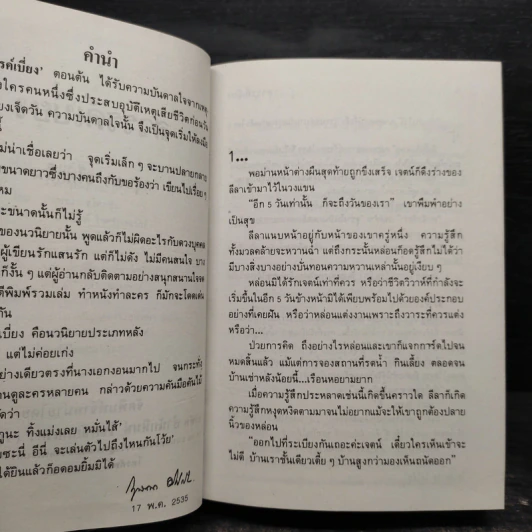 คำนำ
รค์เบี่ยง' ตอนต้น ได้รับความบันดาลใจจากเหตุ
งใครคนหนึ่งซึ่งประสบอุบัติเหตุเสียชีวิตก่อนวัน
ยงเจ็ดวัน ความบันดาลใจนั้น จึงเป็นจุดเริ่มให้ลงมือ
ี้
ไม่น่าเชื่อเลยว่า จุดเริ่มเล็ก ๆ จะบานปลายกลาย
ขนาดยาวซึ่งบางคนถึงกับขอร้องว่า เขียนไปเรื่อย ๆ
หม
ะขนาดนั้นก็ไม่รู้
ของนวนิยายนั้น พูดแล้วก็ไม่ผิดอะไรกับดวงบุคคล
ผู้เขียนรักแสนรัก แต่ก็ไม่ดัง ไม่มีคนสนใจ บาง
ก็งั้น ๆ แต่ผู้อ่านกลับติดตามอย่างสนุกสนานใจจด
ตีพิมพ์รวมเล่ม ทำหนังทำละคร ก็มักจะโดดเด่น
กัน
เบี่ยง คือนวนิยายประเภทหลัง
แต่ไม่ค่อยเก่ง
อย่างเดียวตรงที่นางเอกงอนมากไป จนกระทั่ง
นดูละครหลายคน กล่าวด้วยความคันมือคันไม้
ดว่า
กูนะ ทิ้งแม่งเลย หมั่นไส้'
ซะนี่ อีนี่ จะเล่นตัวไปถึงไหนกันโว้ย'
ได้ยินแล้วก็อดอมยิ้มมิได้
17 พ.ค. 2535
1...
พอม่านหน้าต่างผืนสุดท้ายถูกขึงเสร็จ เจตน์ก็ดึงร่างของ
ลีลาเข้ามาไว้ในวงแขน
"อีก 5 วันเท่านั้น ก็จะถึงวันของเรา" เขาพึมพำอย่าง
เป็นสุข
ลีลาแนบหน้าอยู่กับหน้าอกของเขาครู่หนึ่ง ความรู้สึก
ทั้งมวลคล้ายจะหวานฉ่ำ แต่ถึงกระนั้นหล่อนก็อดรู้สึกไม่ได้ว่า
มีบางสิ่งบางอย่างบั่นทอนความหวานเหล่านั้นอยู่เงียบ ๆ
หล่อนมิได้รักเจตน์เท่าที่ควร หรือว่าชีวิตวิวาห์ที่กำลังจะ
เริ่มขึ้นในอีก 5 วันข้างหน้ามิได้เพียบพร้อมไปด้วยองค์ประกอบ
อย่างที่เคยฝัน หรือว่าหล่อนแต่งงานเพราะถึงวาระที่ควรแต่ง
หรือว่า...
ป่วยการคิด ถึงอย่างไรหล่อนและเขาก็แจกการ์ดไปจน
หมดสิ้นแล้ว แม้แต่การจองสถานที่รดน้ำ กินเลี้ยง ตลอดจน
บ้านเช่าหลังน้อยนี้...เรือนหอยามยาก
เมื่อความรู้สึกประหลาดเช่นนี้เกิดขึ้นคราวใด ลีลาก็เกิด
ความรู้สึกหงุดหงิดตามมาจนไม่อยากแม้จะให้เขาถูกต้องปลาย
นิ้วของหล่อน
"ออกไปที่ระเบียงกันเถอะค่ะเจตน์ เดี๋ยวใครเห็นเข้าจะ
ไม่ดี บ้านเราชั้นเดียวเตี้ย ๆ บ้านสูงกว่ามองเห็นถนัดออก"